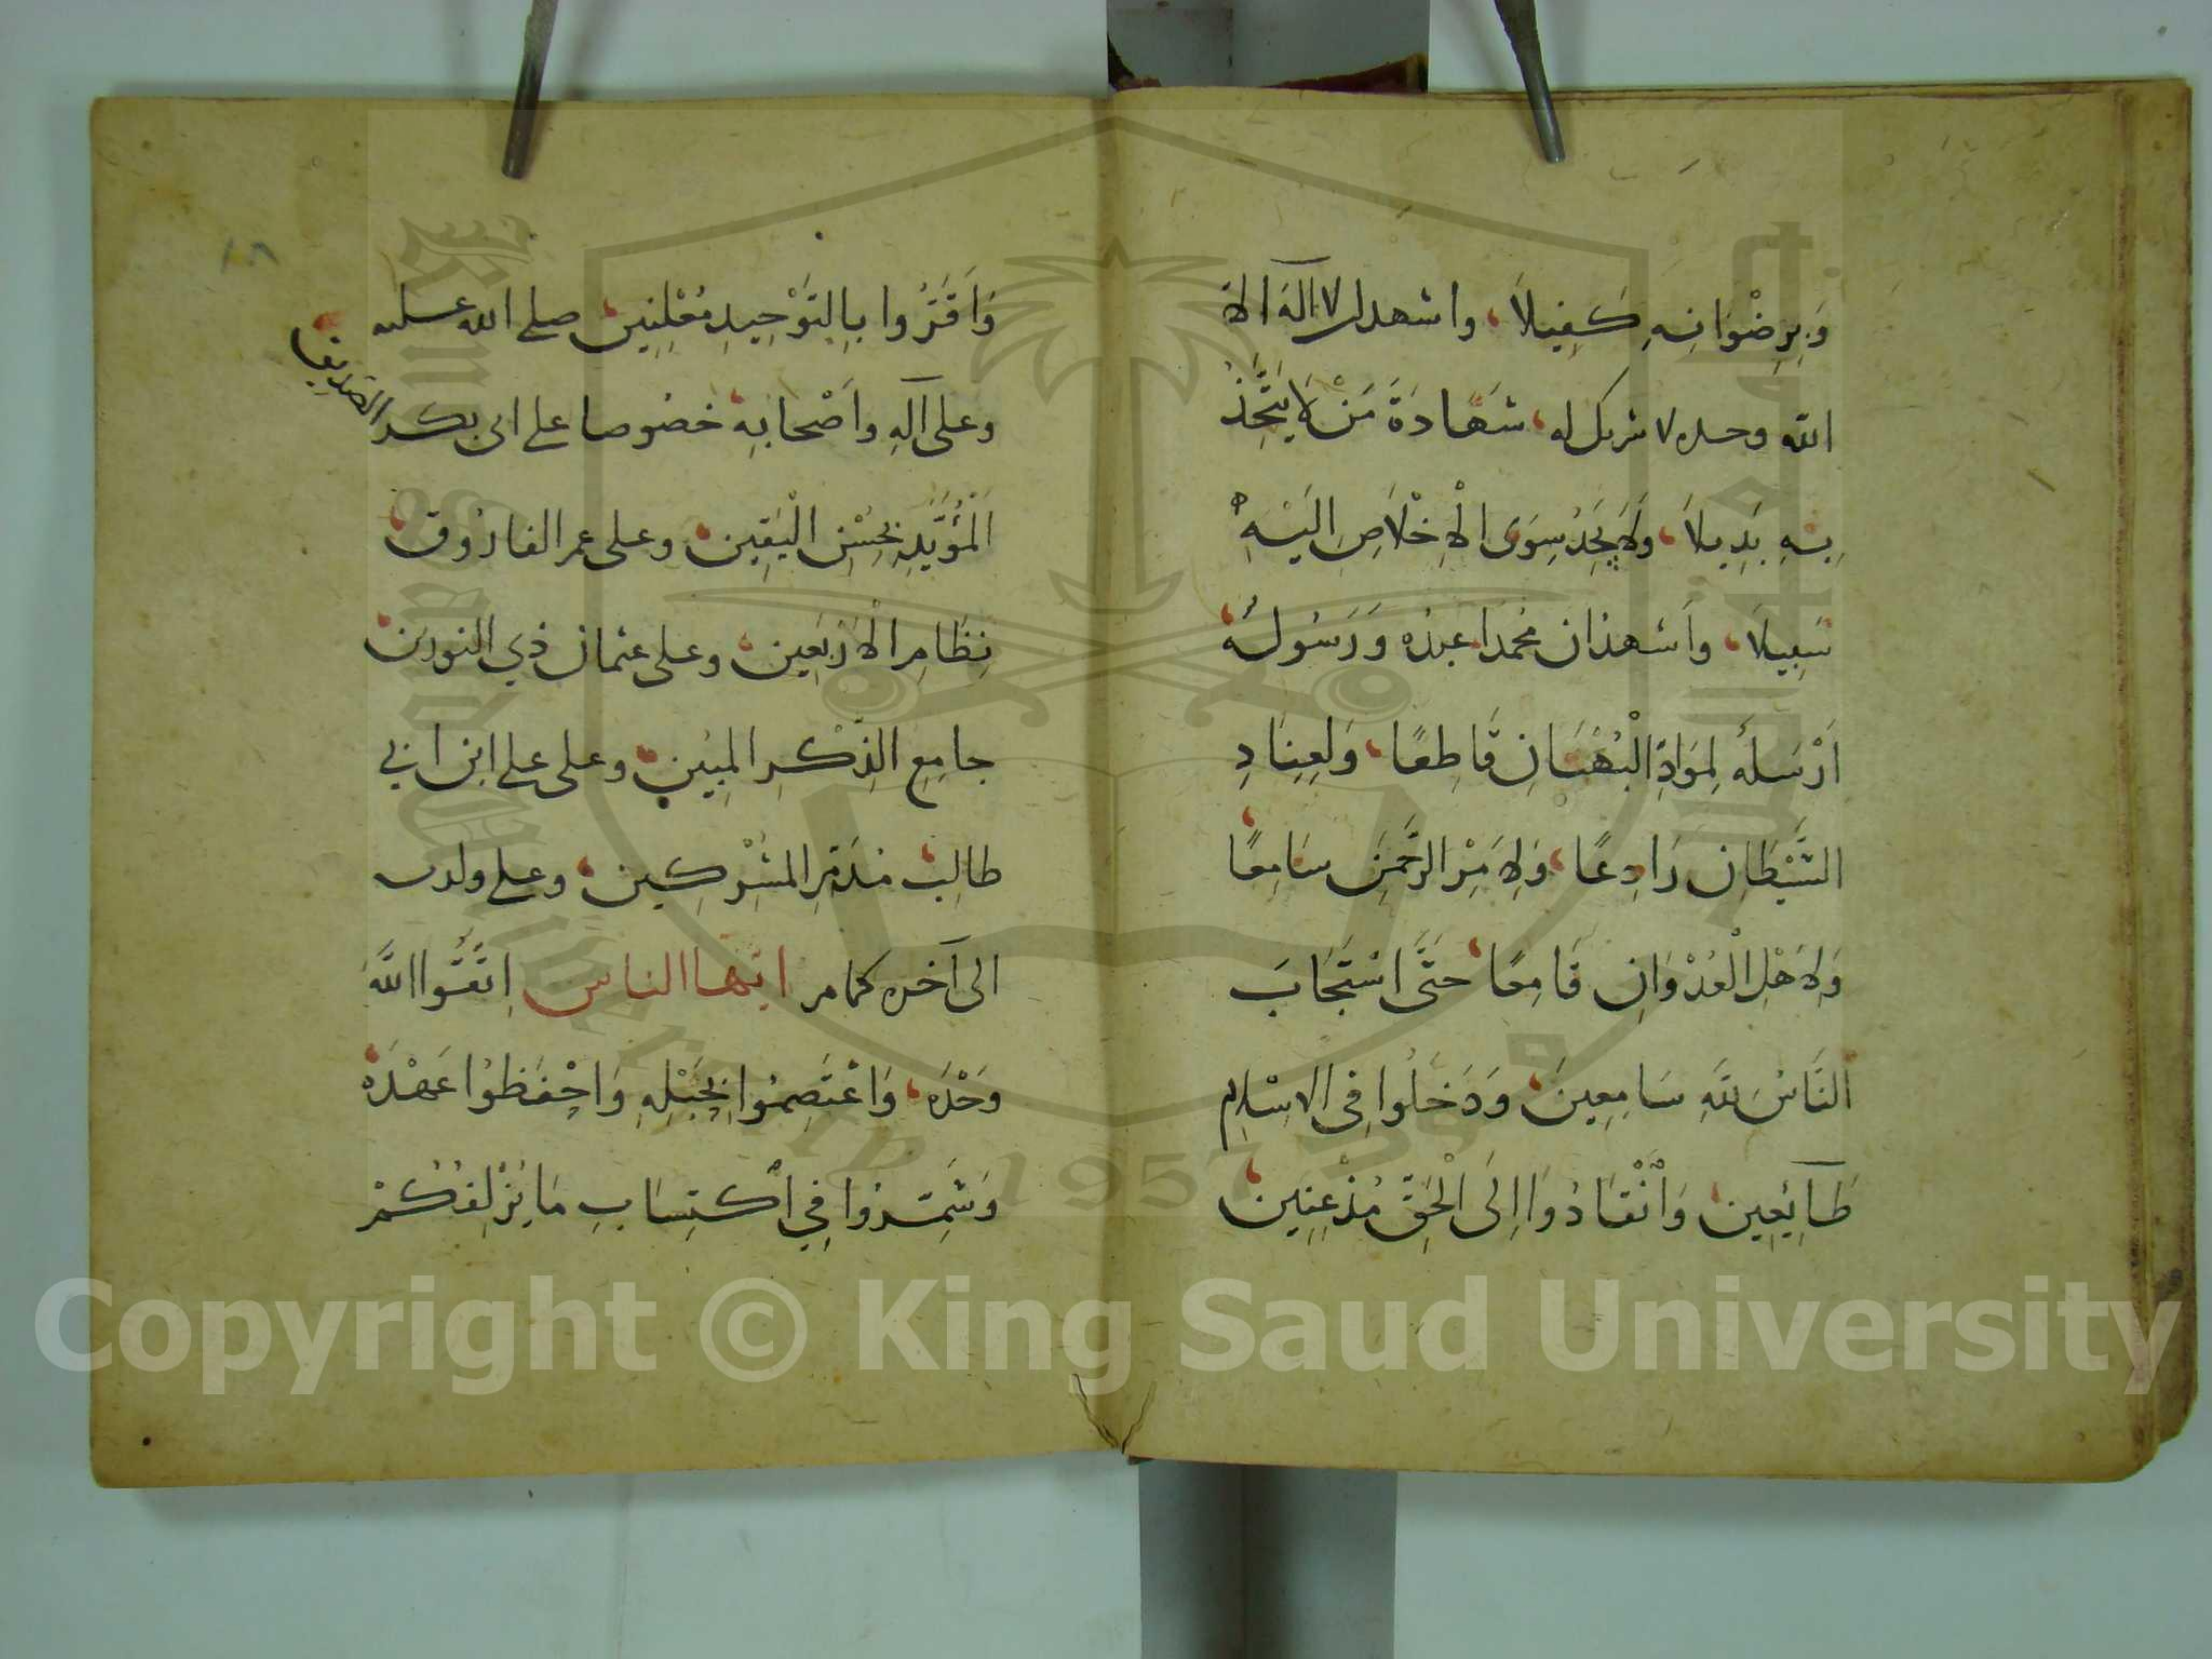 وَبِرِضْوَانِهِ كَفِيلاً، واشهد ان لا اله الا
الله وحده لا شريك له، شَهَادَةَ مَنْ لَا يَتَّخِذُ
بِهِ بَدِيلاً، وَلَا يَجِدُ سِوَى الْإِخْلَاصِ اِلَيْهِ
سَبِيلاً، وأشهد ان محمدا عبده وَرَسُولُهُ،
اَرْسَلَهُ لِمَوَادِّ الْبُهْتَانِ قَاطِعًا، وَلِعِنَادِ
الشَّيْطَانِ رَادِعًا، وَلِاَمْرِ الرَّحْمَنِ سَامِعًا
وَلِاَهْلِ الْعُدْوَانِ قَامِعًا، حَتَّى اسْتَجَابَ
النَّاسُ لِلَّهِ سَامِعِينَ، وَدَخَلُوا فِي الاِسْلامِ
طَائِعِينَ، وَانْقَادُوا اِلَى الْحَقِّ مُذْعِنِينَ،
وَاَقَرُّوا بِالتَّوْحِيدِ مُعْلِنِينَ، صلى الله عليه
وعلى آلِهِ وَاَصْحَابِهِ، خصُوصا على ابى بكر الصديق
اَلْمُؤَيَّدِ بِحُسْنِ الْيَقِينِ، وعلى عمر الفارُوق،
نِظَامِ الْاَرْبَعِين، وعلى عثمان ذِي النورين،
جامِعِ الذِّكْرِ المُبِين، وعلى على ابن ابي
طالِب، مُدَمِّرِ المُشْرِكِين، وعلى ولديه
الى آخره كما مر ايّها الناس اِتَّقُوا اللَّهَ
وَحْدَه، وَاعْتَصِمُوا بِحَبْلِهِ وَاحْفَظُوا عَهْدَه،
وَشَمِّرُوا فِي اكْتِسَابِ مَا يُزْلِفُكُمْ
Copyright © King Saud University
1957